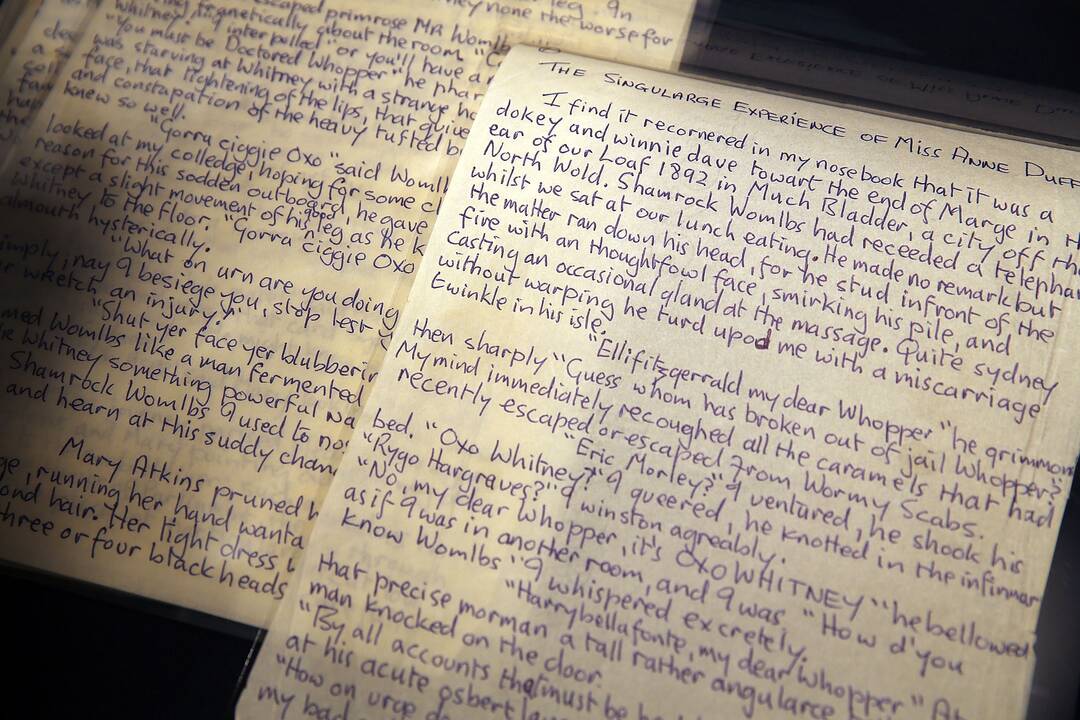 leg. 9n
escaped primrose Mr Womlb
they none the worse for
whitney
magnetically about the room
"g interpelled "or you'll have a
"You must be Doctored Whopper" he
was starving at Whitney with a strange
face, that tightening of the lips, that
and constapation of the heavy tufted
knew so well.
"Gorra ciggie Oxo "said Womlb
looked at my colledge, hoping for some
reason for this sodden outboard, he gave
except a slight movement of his good leg as he
Whitney to the floor. "Gorra ciggie Oxo
almouth hysterically.
"What on urn are you doing
imply, nay 9 besiege you, stop lest
wretch an injury."
"Shut yer face yer blubberin
med Womlbs like a man fermented
Whitney something powerful
Shamrock Womlbs 9 used to
and hearn at this suddy
Mary Atkins pruned
ge, running her hand wanta
ond hair. Her tight dress
three or four blackheads
THE SINGULARGE EXPERIENCE OF MISS ANNE DUFF
I find it recornered in my nosebook that it was a
dokey and winnie dave towart the end of Marge in
ear of our Loaf 1892 in Much Bladder, a city off the
North Wold. Shamrock Womlbs had receeded a telephan
whilst we sat at our lunch eating. He made no remark but
the matter ran down his head, for he stud infront of the
fire with an thoughtfowl face, smirking his pile, and
casting an occasional gland at the massage. Quite sydney
without warping he turd upod me with a miscarriage
twinkle in his isle.
"Ellifitzgerrald my dear Whopper "he grimmon
then sharply "Guess whom has broken out of jail Whopper?"
My mind immediately recoughed all the caramels that had
recently escaped or escaped from Wormy Scabs.
"Eric Morley?" 9 ventured, he shook his
bed. "Oxo Whitney?" 9 queered, he knotted in the infirmar
"Rygo Hargraves?" 9 winston agreably.
"No, my dear Whopper, it's OXO WHITNEY" he bellowed
as if 9 was in another room, and 9 was. "How d'you
know Womlbs" 9 whispered excretely.
"Harrybellafonte, my dear Whopper" At
that precise morman a tall rather angularce
man knocked on the cloor.
"By all accounts that must be
at his acute osbert
"How on urge
my